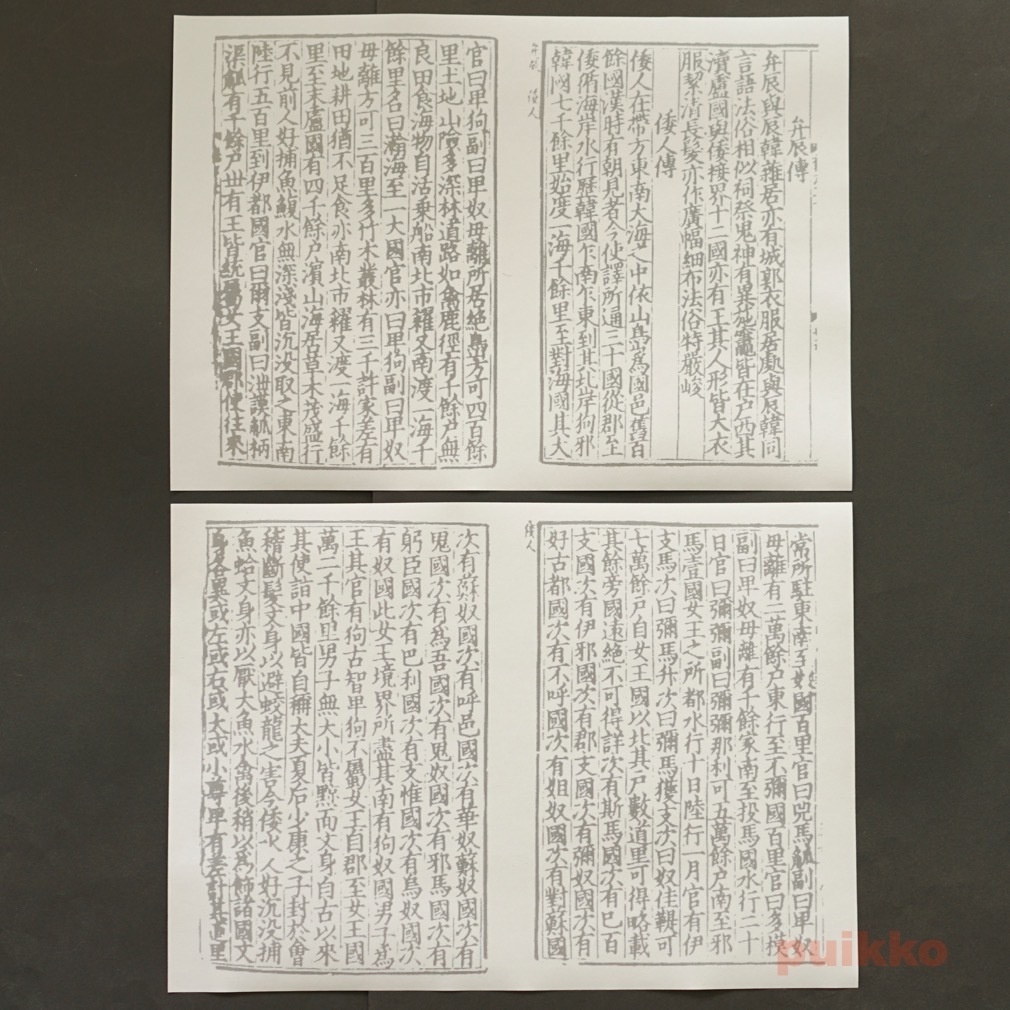 弁辰傳
弁辰與辰韓雜居亦有城郭衣服居處與辰韓同
言語法俗相似祠祭鬼神有異施竈皆在户西其
瀆盧國與倭接界十二國亦有王其人形皆大衣
服絜清長髮亦作廣幅細布法俗特嚴峻
倭人傳
倭人在帶方東南大海之中依山島爲國邑舊百
餘國漢時有朝見者今使譯所通三十國從郡至
倭循海岸水行歷韓國乍南乍東到其北岸狗邪
韓國七千餘里始度一海千餘里至對海國其大
弁辰 倭人
官曰卑狗副曰卑奴毋離所居絶島方可四百餘
里土地山險多深林道路如禽鹿徑有千餘户無
良田食海物自活乗船南北市糴又南渡一海千
餘里名曰瀚海至一大國官亦曰卑狗副曰卑奴
毋離方可三百里多竹木叢林有三千許家差有
田地耕田猶不足食亦南北市糴又渡一海千餘
里至末盧國有四千餘户濱山海居草木茂盛行
不見前人好捕魚鰒水無深淺皆沉没取之東南
陸行五百里到伊都國官曰爾支副曰泄謨觚柄
渠觚有千餘户丗有王皆統屬女王國郡使往來
常所駐東南至奴國百里官曰兕馬觚副曰卑奴
毋離有二萬餘户東行至不彌國百里官曰多模
副曰卑奴毋離有千餘家南至投馬國水行二十
日官曰彌彌副曰彌彌那利可五萬餘户南至邪
馬壹國女王之所都水行十日陸行一月官有伊
支馬次曰彌馬升次曰彌馬獲支次曰奴佳鞮可
七萬餘户自女王國以北其户數道里可得略載
其餘旁國遠絶不可得詳次有斯馬國次有已百
支國次有伊邪國次有郡支國次有彌奴國次有
好古都國次有不呼國次有姐奴國次有對蘇國
倭人
次有蘇奴國次有呼邑國次有華奴蘇奴國次有
鬼國次有爲吾國次有鬼奴國次有邪馬國次有
躬臣國次有巴利國次有支惟國次有烏奴國次
有奴國此女王境界所盡其南有狗奴國男子爲
王其官有狗古智卑狗不屬女王自郡至女王國
萬二千餘里男子無大小皆黥面文身自古以來
其使詣中國皆自稱大夫夏后少康之子封於會
稽斷髮文身以避蛟龍之害今倭水人好沉没捕
魚蛤文身亦以厭大魚水禽後稍以爲飾諸國文
身各異或左或右或大或小尊卑有差計其道里
puikko